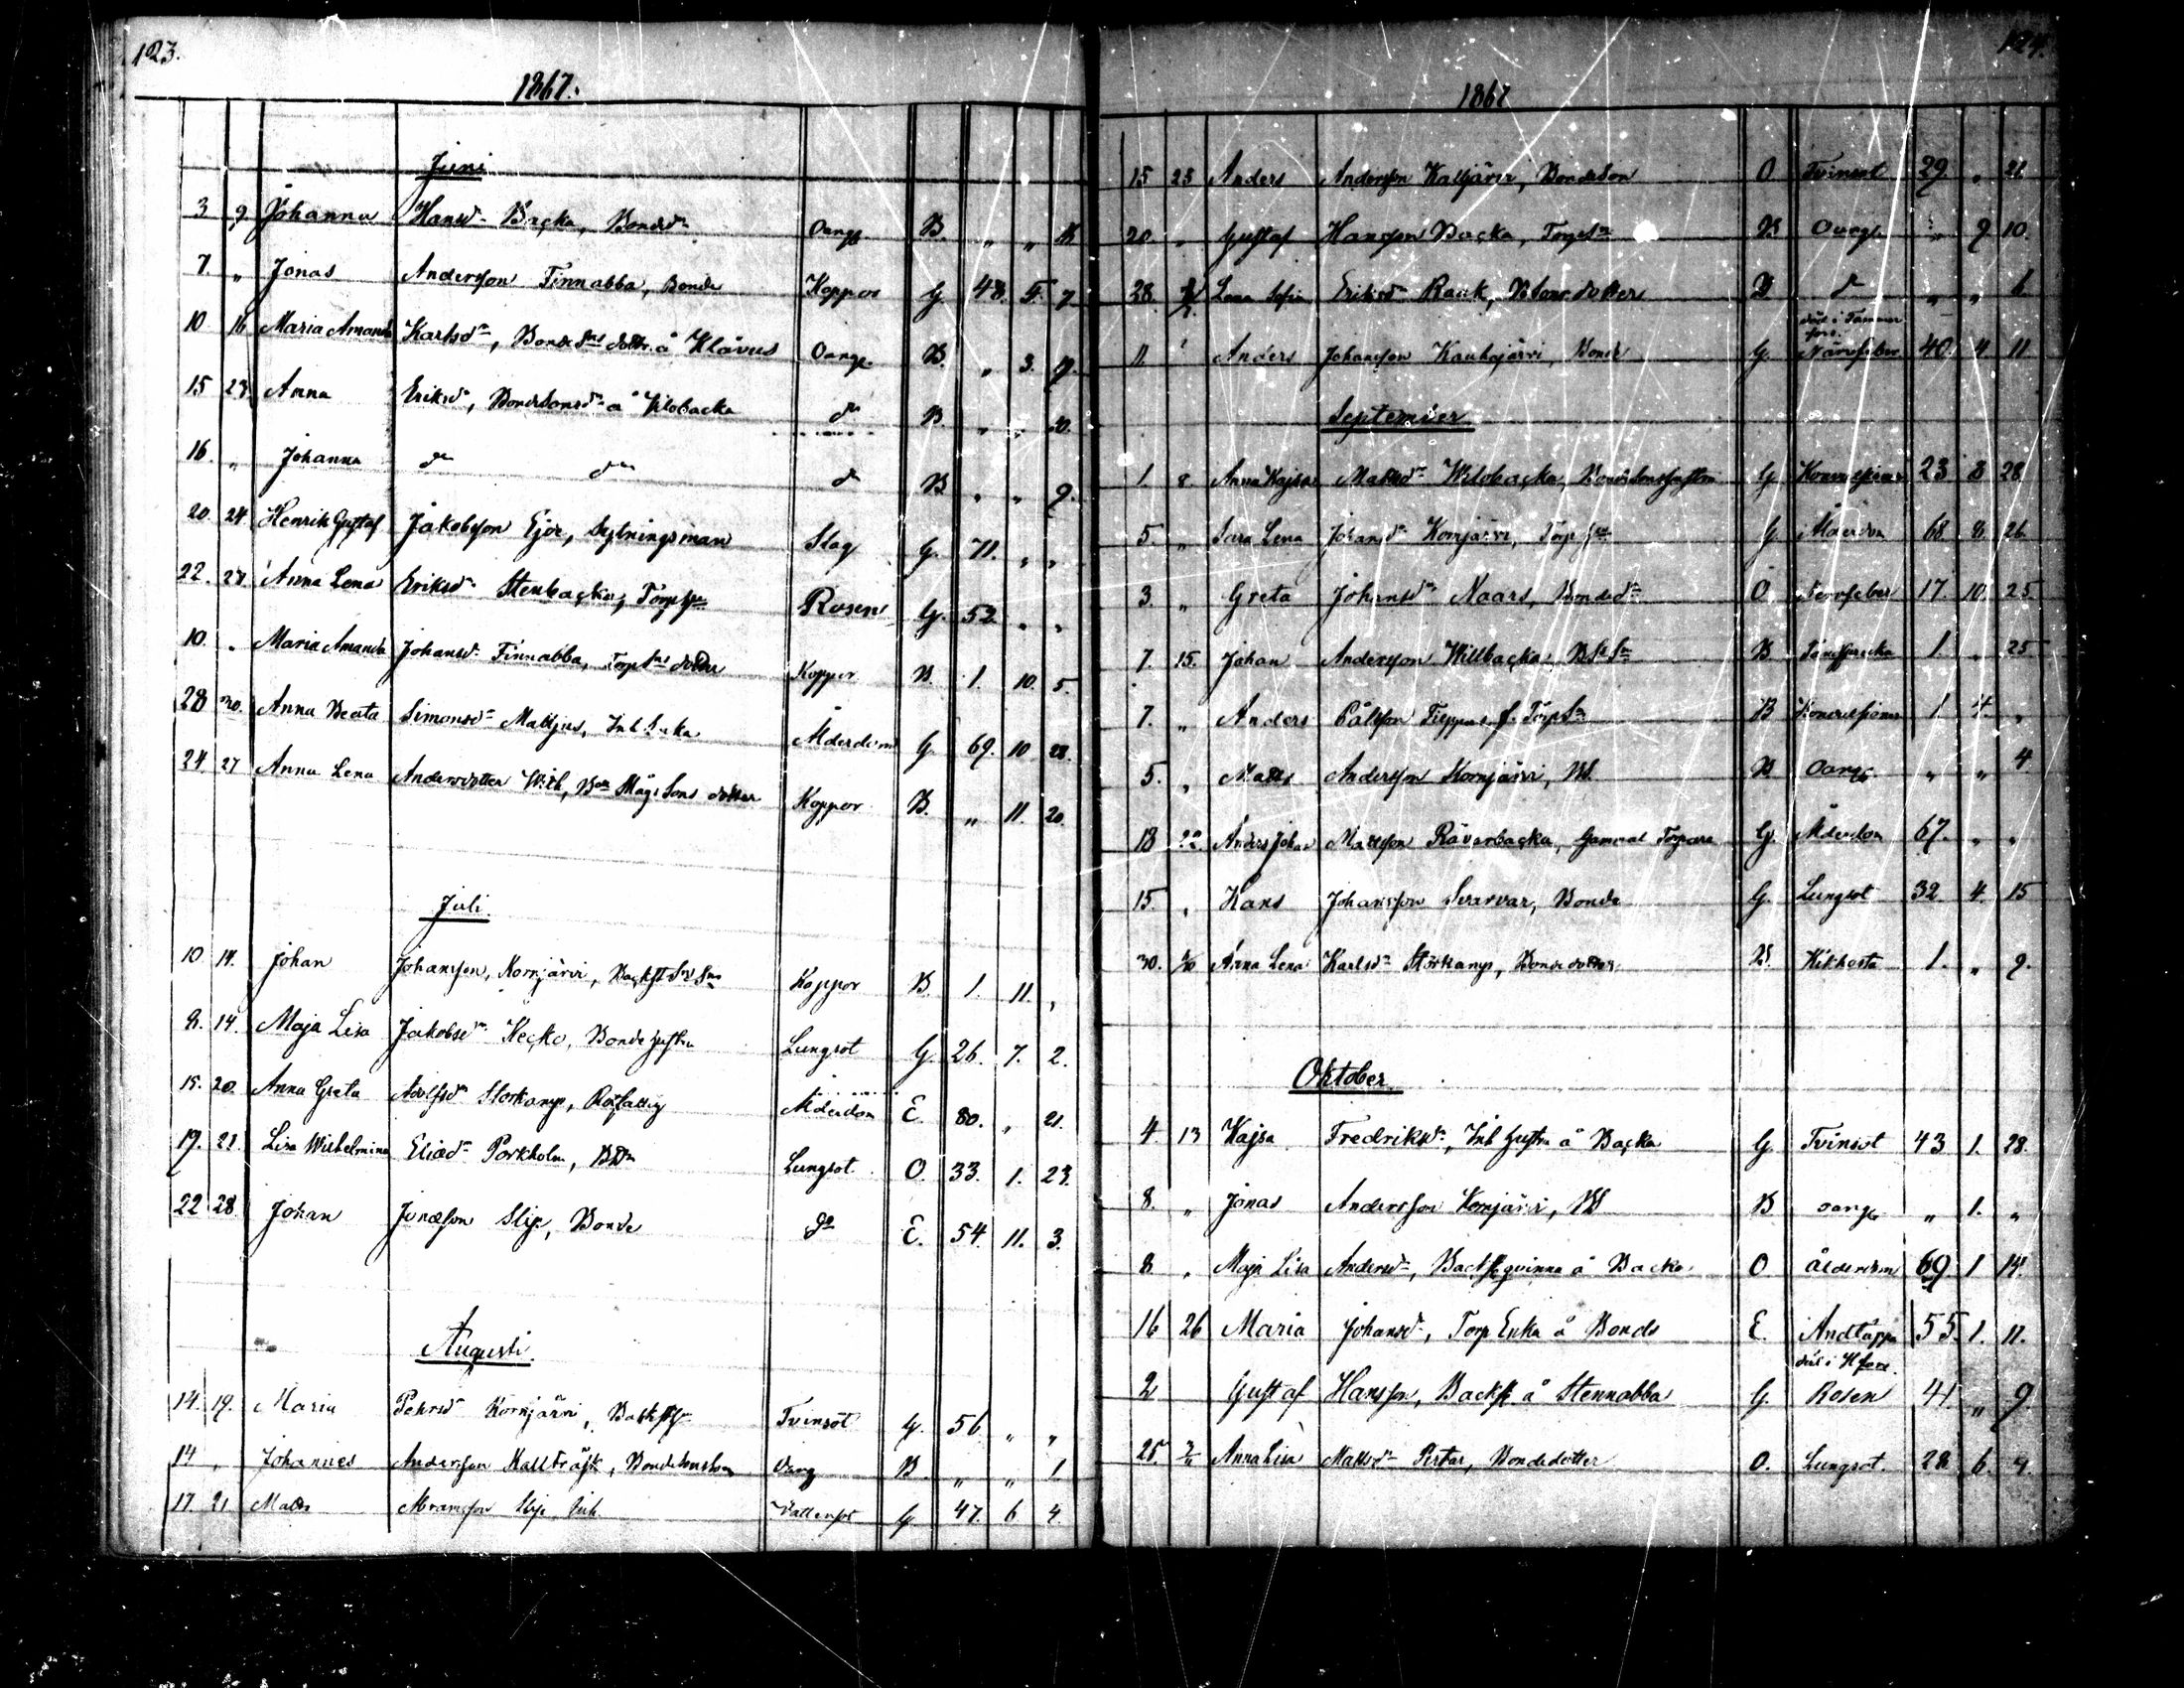 123.
1867.
Juni
3 9 Johanna Hansdr Backa, Bondedr Oangf. B. " "
7. " Jonas Andersson Finnabba, Bonde Koppor G 48. 5. 7.
10 16 Maria Amanda Karlsdr, Bondesns dotter å Klåvus Oangf. B. " 3. 9.
15 23. Anna Eriksdr, Bondesonsdr å Wilobacka do B. " "
16. " Johanna do do do B " " 9.
20 24 Henrik Gustaf Jakobsson Ejor, Sytningsman Slag G. 71. " "
22. 27. Anna Lena Eriksdr Stenbacka, Torphu Rosen G. 52. " "
10. " Maria Amanda Johansdr Finnabba, Torpsns dotter Koppor B. 1. 10. 5.
28 30. Anna Beata Simonsdr Mattjus, Inh. Enka Ålderdom G. 69. 10 28.
24. 27 Anna Lena Andersdotter Wilb, Bde Mågs Sons dotter Koppor B. " 11. 20.
Juli
10 14. Johan Johansson, Kornjärvi, Backst Sns Sn Koppor B. 1. 11. "
8. 14. Maja Lisa Jakobsdr Kecko, Bondehustru Lungsot G. 26. 7. 2.
15. 20. Anna Greta Adolfsdr Storkamp, Rotfattig Ålderdom E. 80. " 21.
19. 21. Lisa Wilhelmina Eliasdr Porkholm, BDr Lungsot. O. 33. 1. 23.
22 28. Johan Jonasson Slip, Bonde do E. 54. 11. 3.
Augusti.
14. 19. Maria Pehrsdr Kornjärvi, Backsthu Tvinsot G. 56 " "
14 " Johannes Andersson Kallträsk, Bondesonson Oang B " " 1
17. 21. Matts Abramsson Slip Inh. Vattensot G 47. 6 4.
124.
1867
15 25 Anders Andersson Kalljärvi, Bondeson O Tvinsot 29. " 21
20. " Gustaf Hansson Backa, Torpsn B Oangf. " 9 10.
28. Lena Sofia Eriksdr Raak, Bdesons dotter B do " " 6.
död i Tammerfors.
11. " Anders Johansson Kauhajärvi, Bonde G. Nervfeber 40. 4 11
September
1. 8. Anna Kajsa Mattsdr Wilobacka, Bondesonshustru G Konvulsioner 23 8 28
5. " Sara Lena Johansdr Kornjärvi, Torphu G. Ålderdom 68. 8. 26.
3. " Greta Johansdr Naars, Bondedr O Nervfeber 17. 10. 25
7. 15. Johan Andersson Willbacka, BSSn B Tandsprickn 1 " 25
7. " Anders Pålsson f. Torpsn B Konvulsioner 1. 4. "
5. " Matts Andersson Kornjärvi, BS. B Oangf. " " 4.
18 22. Anders Johan Mattsson Räverbacka, Gammal Torpare G. Ålderdom 67. " "
15. " Hans Johansson Svarvar, Bonde G. Lungsot 32 4. 15
30. 6/10 Anna Lena Karlsdr Storkamp, Bondedotter B. Kikhosta 1. " 9.
Oktober
4. 13 Kajsa Fredriksdr, Inh hustru å Backa G Tvinsot 43 1. 28.
8. " Jonas Andersson Kornjärvi, BS B oangf. " 1. "
8. " Maja Lisa Andersdr, Backstqvinna å Backa O ålderdom 69. 1 14.
16 26 Maria Johansdr, Torp Enka å Bonds E. Andtäppa 55. 1. 11.
död i Hfors.
2 Gustaf Hansson, Backst. å Stennabba G. Rosen 41. " 9
25. Anna Lisa Mattsdr Pertar, Bondedotter O. Lungsot. 28 6. 4.